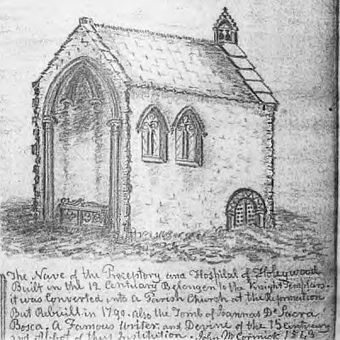 The Nave of the Preceptory and Hospital of Holeywood
Built in the 12 Centuary Belongen to the Knight Templars.
it was Converted into A Parish Church at the Reformation
But Rebuilt in 1790. also the Tomb of Joannas De Sacra
Bosca, A Famous Writer and Devine of the 13 Centuary
and Abbot of this Institution. John McCormick 1843